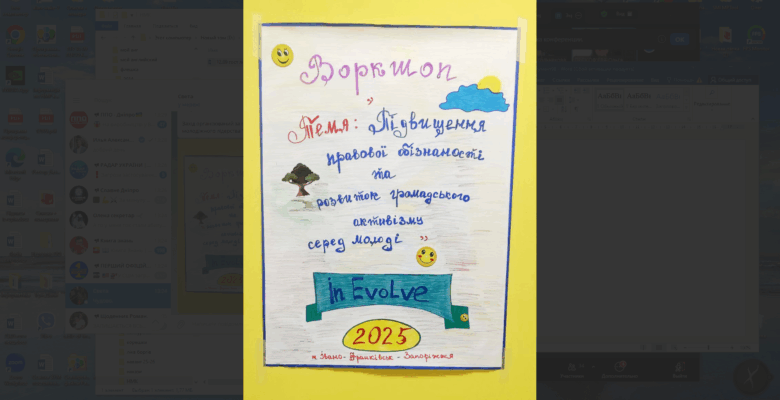 Воркшоп
Тема: "Підвищення
правової обізнаності
та
розвиток громадського
активізму
серед молоді"
in Evolve
2025
м. Івано-Франківськ - Запоріжжя